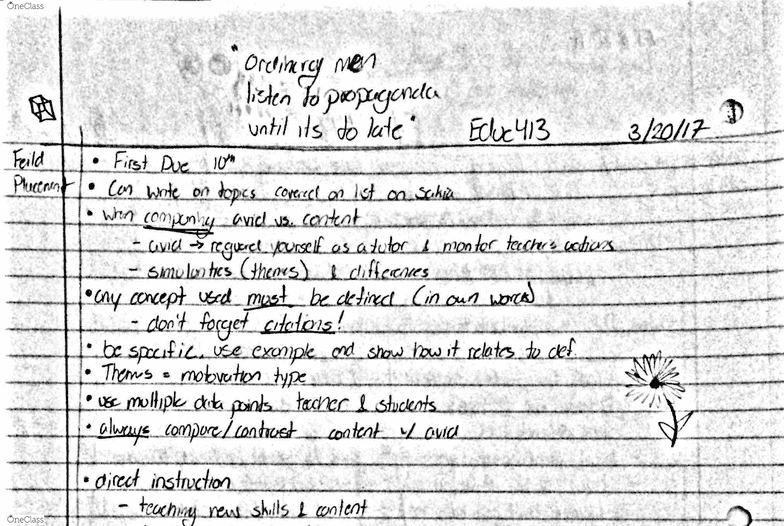 OneClass
"Ordinary men
listen to propaganda
until its to late"
Educ 413
3/20/17
1
Feild
Placement
• First Due 10th
• Can write on topics covered on list on sakia
• when comparing avid vs. content
- avid → reguard yourself as a tutor & monitor teachers actions
- similarities (themes) & differences
• any concept used must be defined (in own words)
- don't forget citations!
• be specific, use example and show how it relates to def.
• Themes = motovation type
• use multiple data points teacher & students
• always compare/contrast content w/ avid
• direct instruction
- teaching new skills & content
OneClass